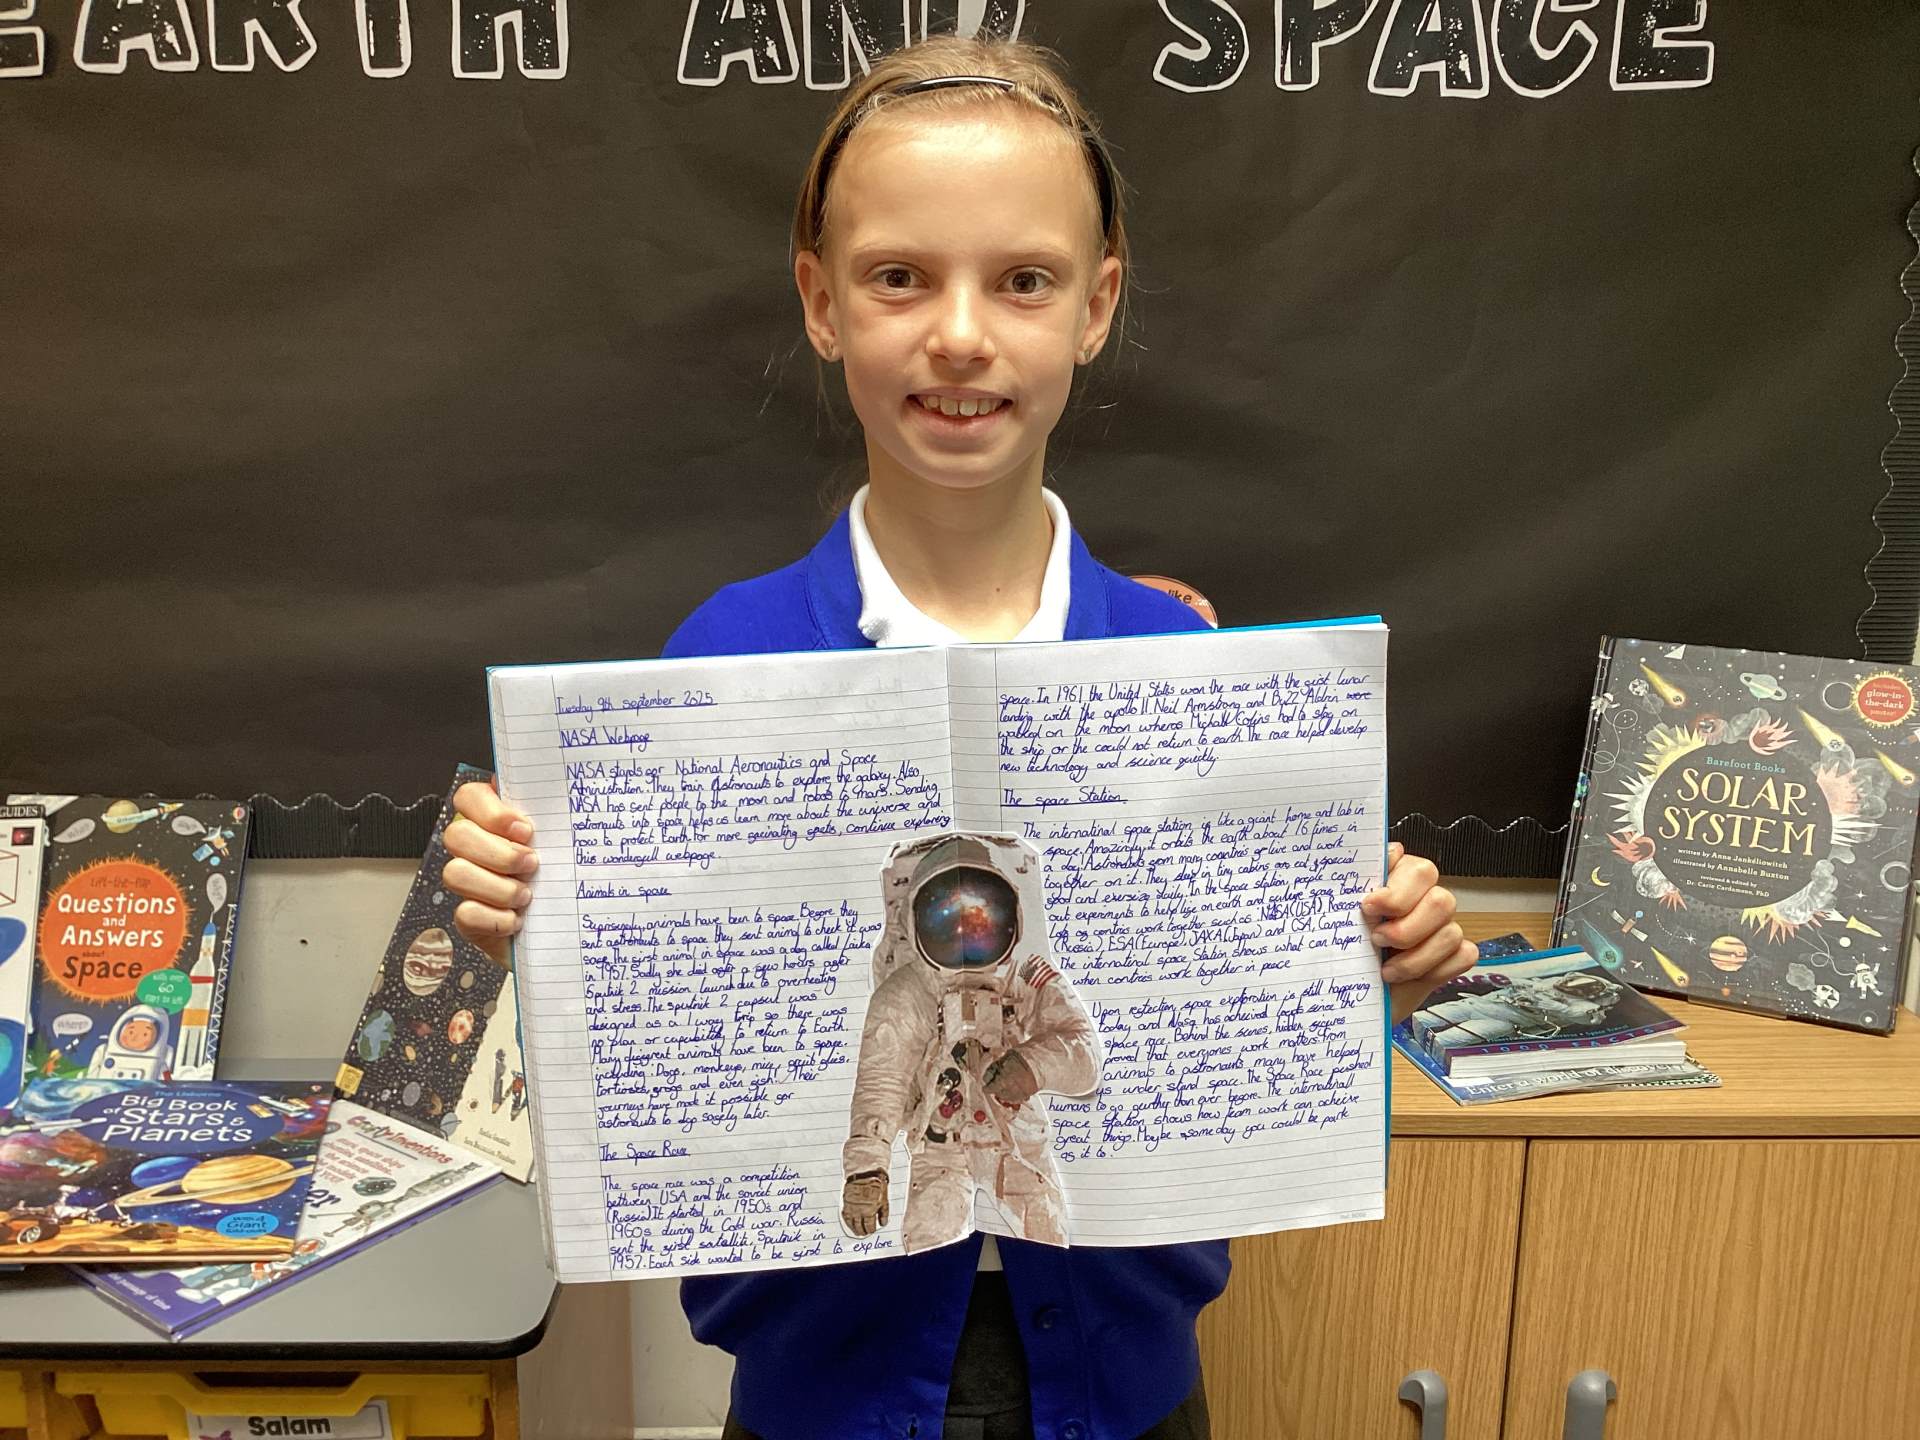 EARTH AND SPACE
Tuesday 9th september 2025
NASA Webpage
NASA stands for National Aeronautics and Space
Administration. They train Astronauts to explore the galaxy. Also
NASA has sent people to the moon and robots to Mars. Sending
astronauts into space helps us learn more about the universe and
how to protect Earth. For more fascinating facts, continue exploring
this wonderfull webpage.
Animals in space
Suprisingly, animals have been to space. Before they
sent astronauts to space they sent animal to check it was
safe. The first animal in space was a dog called Laika
in 1957. Sadly she died after a few hours after
Sputnik 2 mission launch due to overheating
and stress. The sputnik 2 capsul was
designed as a 1 way trip so there was
no plan or capability to return to Earth.
Many different animals have been to space.
including: Dogs, monkeys, mice, fruit flies,
tortioses, frogs and even fish! Their
journeys have made it possible for
astronauts to safely later.
The Space Race
The space race was a competition
bettween USA and the soviet union
(Russia) It started in 1950s and
1960s during the Cold war. Russia
sent the first satallite, Sputnik in
1957. Each side wanted to be first to explore
space. In 1961 the United States won the race with the first lunar
landing with the apollo 11. Neil Armstrong and Buzz Aldrin were
walked on the moon wheras Michael Collins had to stay on
the ship or the could not return to earth. The race helped develop
new technology and science quickly.
The space Station
The international space station is like a giant home and lab in
space. Amazingly, it orbits the earth about 16 times in
a day! Astronauts from many countries live and work
together on it. They sleep in tiny cabins are eat special
food and exersize daily. In the space station, people carry
out experments to help life on earth and future space travel.
Lots of contries work together such as: NASA (USA), Roscosmos
(Russia), ESA (Europe), JAXA (Japan) and CSA, Canada.
The international space Station shows what can happen
when contries work together in peace
Upon reflection, space exploration is still happening
today and Nasa has acheived loads since the
space race. Behind the scenes, hidden figures
proved that everyones work matters. From
animals to astronaunts many have helped
us under stand space. the Space Race pushed
humans to go further than ever before. The international
space Station shows how team work can acheive
great things. Maybe someday you could be part
of it to.
GUIDES
Lift-the-flap
Questions
and
Answers
about
Space
with over
60
flaps to lift
What?
Why?
Where?
The Usborne
Big Book
of Stars &
Planets
with 4
Giant
fold-outs
Crafty Inventions
Salam
like
Includes
glow-in-
the-dark
poster!
Barefoot Books
SOLAR
SYSTEM
written by Anne Jankéliowitch
illustrated by Annabelle Buxton
reviewed & edited by
Dr. Carie Cardamone, PhD
1000 FACTS
Enter a world of discovery